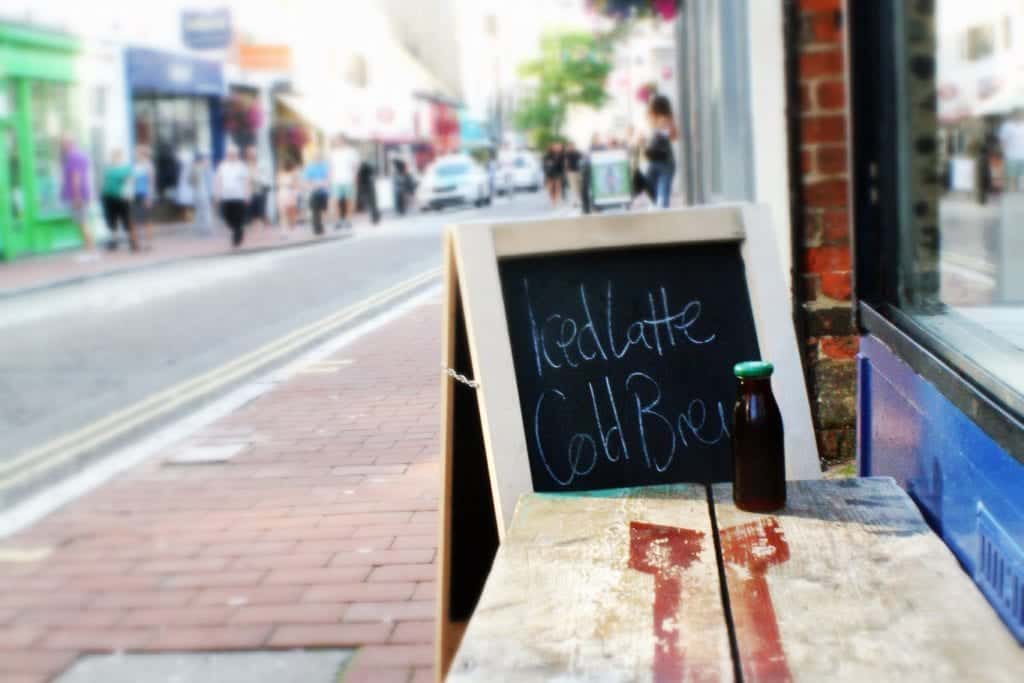 Iced Latte
Cold Brew